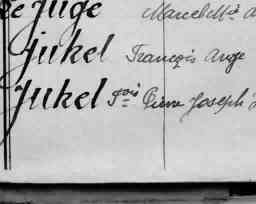 Le Juge Marcel Mie
Jukel François Ange
Jukel Fçois Pierre Joseph